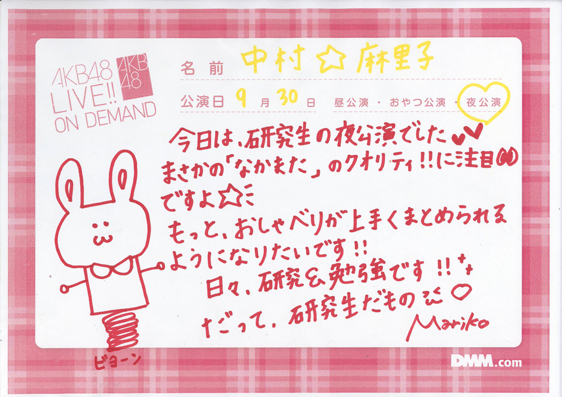 AKB48
LIVE!!
ON DEMAND
AKB
48
名前 中村☆麻里子
公演日 9月30日 昼公演・おやつ公演・夜公演
今日は、研究生の夜公演でした♥♥
まさかの「なかまた」のクオリティ!!に注目
ですよ☆
もっと、おしゃべりが上手くまとめられる
ようになりたいです!!
日々、研究&勉強です!!
だって、研究生だもの
Mariko
ビヨーン
DMM.com